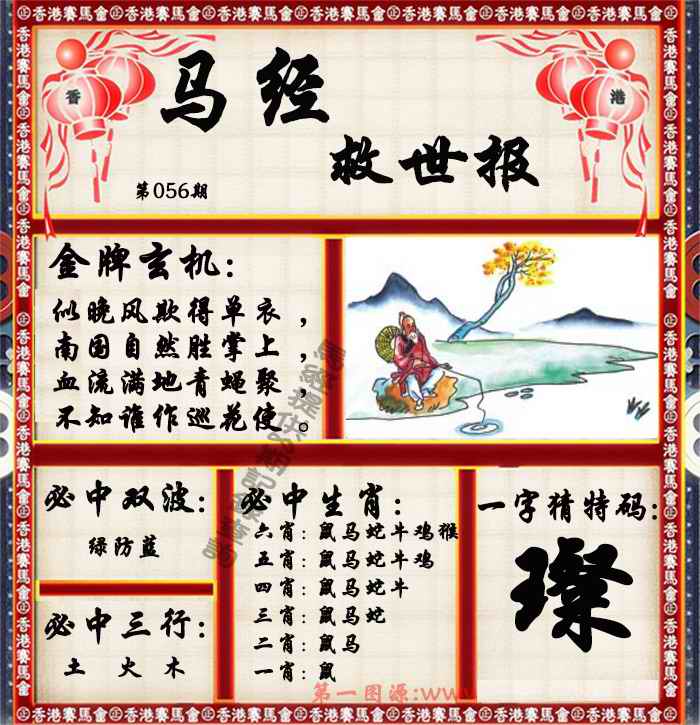 香港賽馬會
香 港
马经
救世报
第056期
金牌玄机：
似晚风欺得单衣，
南国自然胜掌上，
血流满地青蝇聚，
不知谁作巡花使。
必中双波：
绿防蓝
必中三行：
土 火 木
必中生肖：
六肖：鼠马蛇牛鸡猴
五肖：鼠马蛇牛鸡
四肖：鼠马蛇牛
三肖：鼠马蛇
二肖：鼠马
一肖：鼠
一字猜特码：
璨
第一图源:www